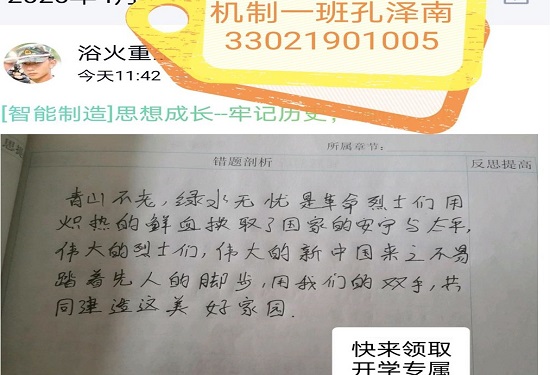 机制一班孔泽南
33021901005
浴火重...
今天11:42
[智能制造]思想成长--牢记历史,
所属章节:
错题剖析
反思提高
青山不老,绿水无忧是革命烈士们用
炽热的鲜血换取了国家的安宁与太平,
伟大的烈士们,伟大的新中国来之不易
踏着先人的脚步,用我们的双手,共
同建造这美好家园.
快来领取
开学专属